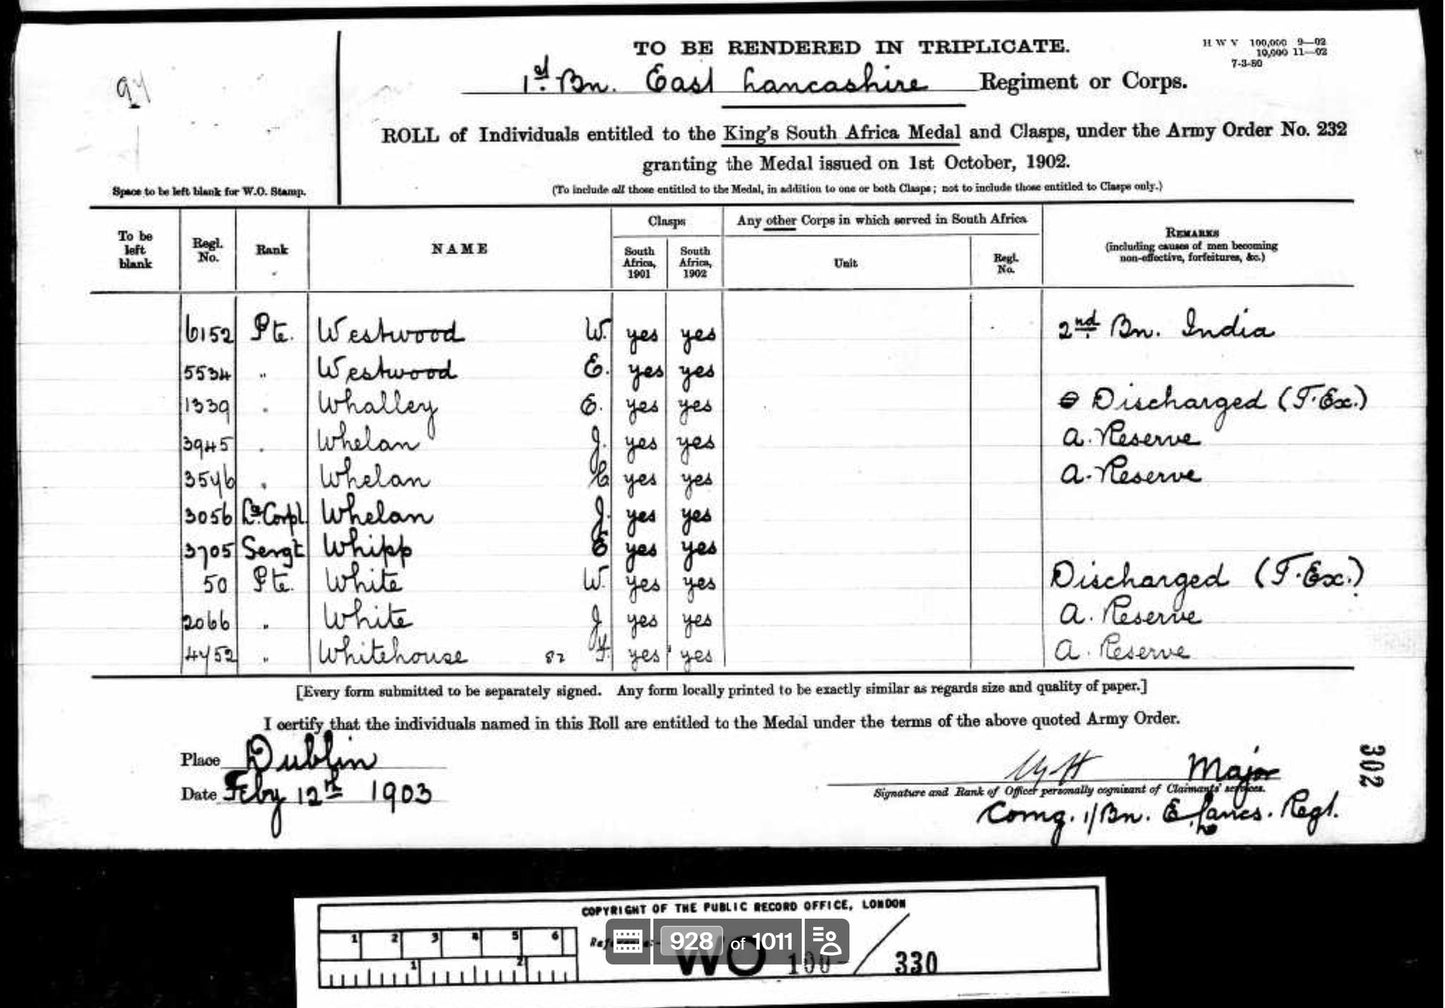 TO BE RENDERED IN TRIPLICATE.
H W V 100,000 9—02
10,000 11—02
7-3-80
94
1st Bn. East Lancashire Regiment or Corps.
ROLL of Individuals entitled to the King's South Africa Medal and Clasps, under the Army Order No. 232
granting the Medal issued on 1st October, 1902.
Space to be left blank for W.O. Stamp.
(To include all those entitled to the Medal, in addition to one or both Clasps; not to include those entitled to Clasps only.)
To be left blank
Regl. No.
Rank
NAME
Clasps
South Africa, 1901
South Africa, 1902
Any other Corps in which served in South Africa
Unit
Regl. No.
REMARKS
(including causes of men becoming
non-effective, forfeitures, &c.)
6152 Pte. Westwood W. yes yes 2nd Bn. India
5534 " Westwood E. yes yes
1339 " Whalley E. yes yes Discharged (T.Ex.)
3945 " Whelan J. yes yes A. Reserve
3546 " Whelan C yes yes A. Reserve
3056 Lce Corpl Whelan J. yes yes
3705 Sergt Whipp E yes yes
50 Pte. White W. yes yes Discharged (T.Ex.)
2066 " White J yes yes A. Reserve
4452 " Whitehouse 82 F. yes yes A. Reserve
[Every form submitted to be separately signed. Any form locally printed to be exactly similar as regards size and quality of paper.]
I certify that the individuals named in this Roll are entitled to the Medal under the terms of the above quoted Army Order.
Place Dublin
Date Feby 12th 1903
Major
Signature and Rank of Officer personally cognizant of Claimants' services.
Comg. 1/Bn. E. Lancs. Regt.
302
COPYRIGHT OF THE PUBLIC RECORD OFFICE, LONDON
1 2 3 4 5 6
1 2
928 of 1011
WO 100 / 330